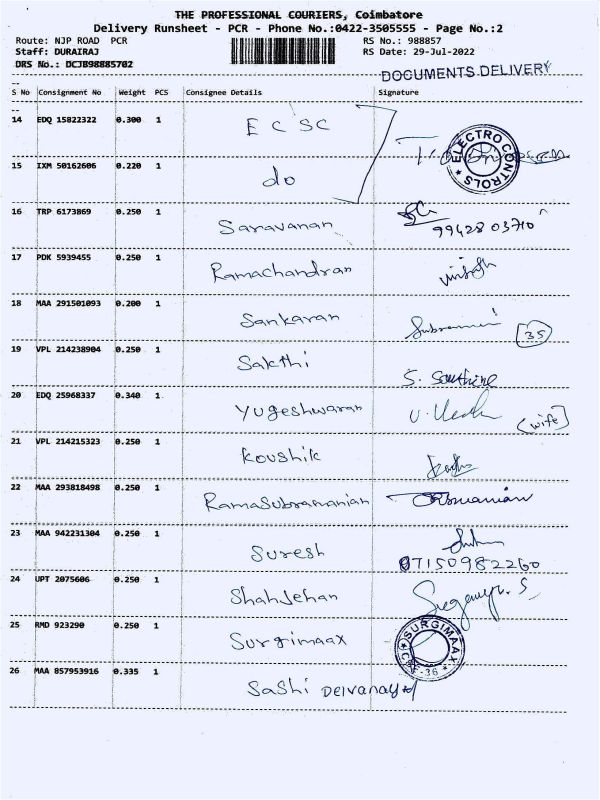 THE PROFESSIONAL COURIERS, Coimbatore
Delivery Runsheet - PCR - Phone No.:0422-3505555 - Page No.:2
Route: NJP ROAD PCR RS No.: 988857
Staff: DURAIRAJ RS Date: 29-Jul-2022
DRS No.: DCJB98885702
DOCUMENTS DELIVERY
S No Consignment No Weight PCS Consignee Details Signature
14 EDQ 15822322 0.300 1 E C SC
ELECTRO CONTROLS
15 IXM 50162606 0.220 1 do
16 TRP 6173869 0.250 1 Saravanan
99428 03710
17 PDK 5939455 0.250 1 Ramachandran
18 MAA 291501093 0.200 1 Sankaran 35
19 VPL 214238904 0.250 1 Sakthi
20 EDQ 25968337 0.340 1 Yugeshwaran (wife)
21 VPL 214215323 0.250 1 Koushik
22 MAA 293818498 0.250 1 RamaSubramanian
23 MAA 942231304 0.250 1 Suresh
07150982260
24 UPT 2075606 0.250 1 ShahJehan
25 RMD 923290 0.250 1 Surgimaax SURGIMAAX
26 MAA 857953916 0.335 1 Sashi